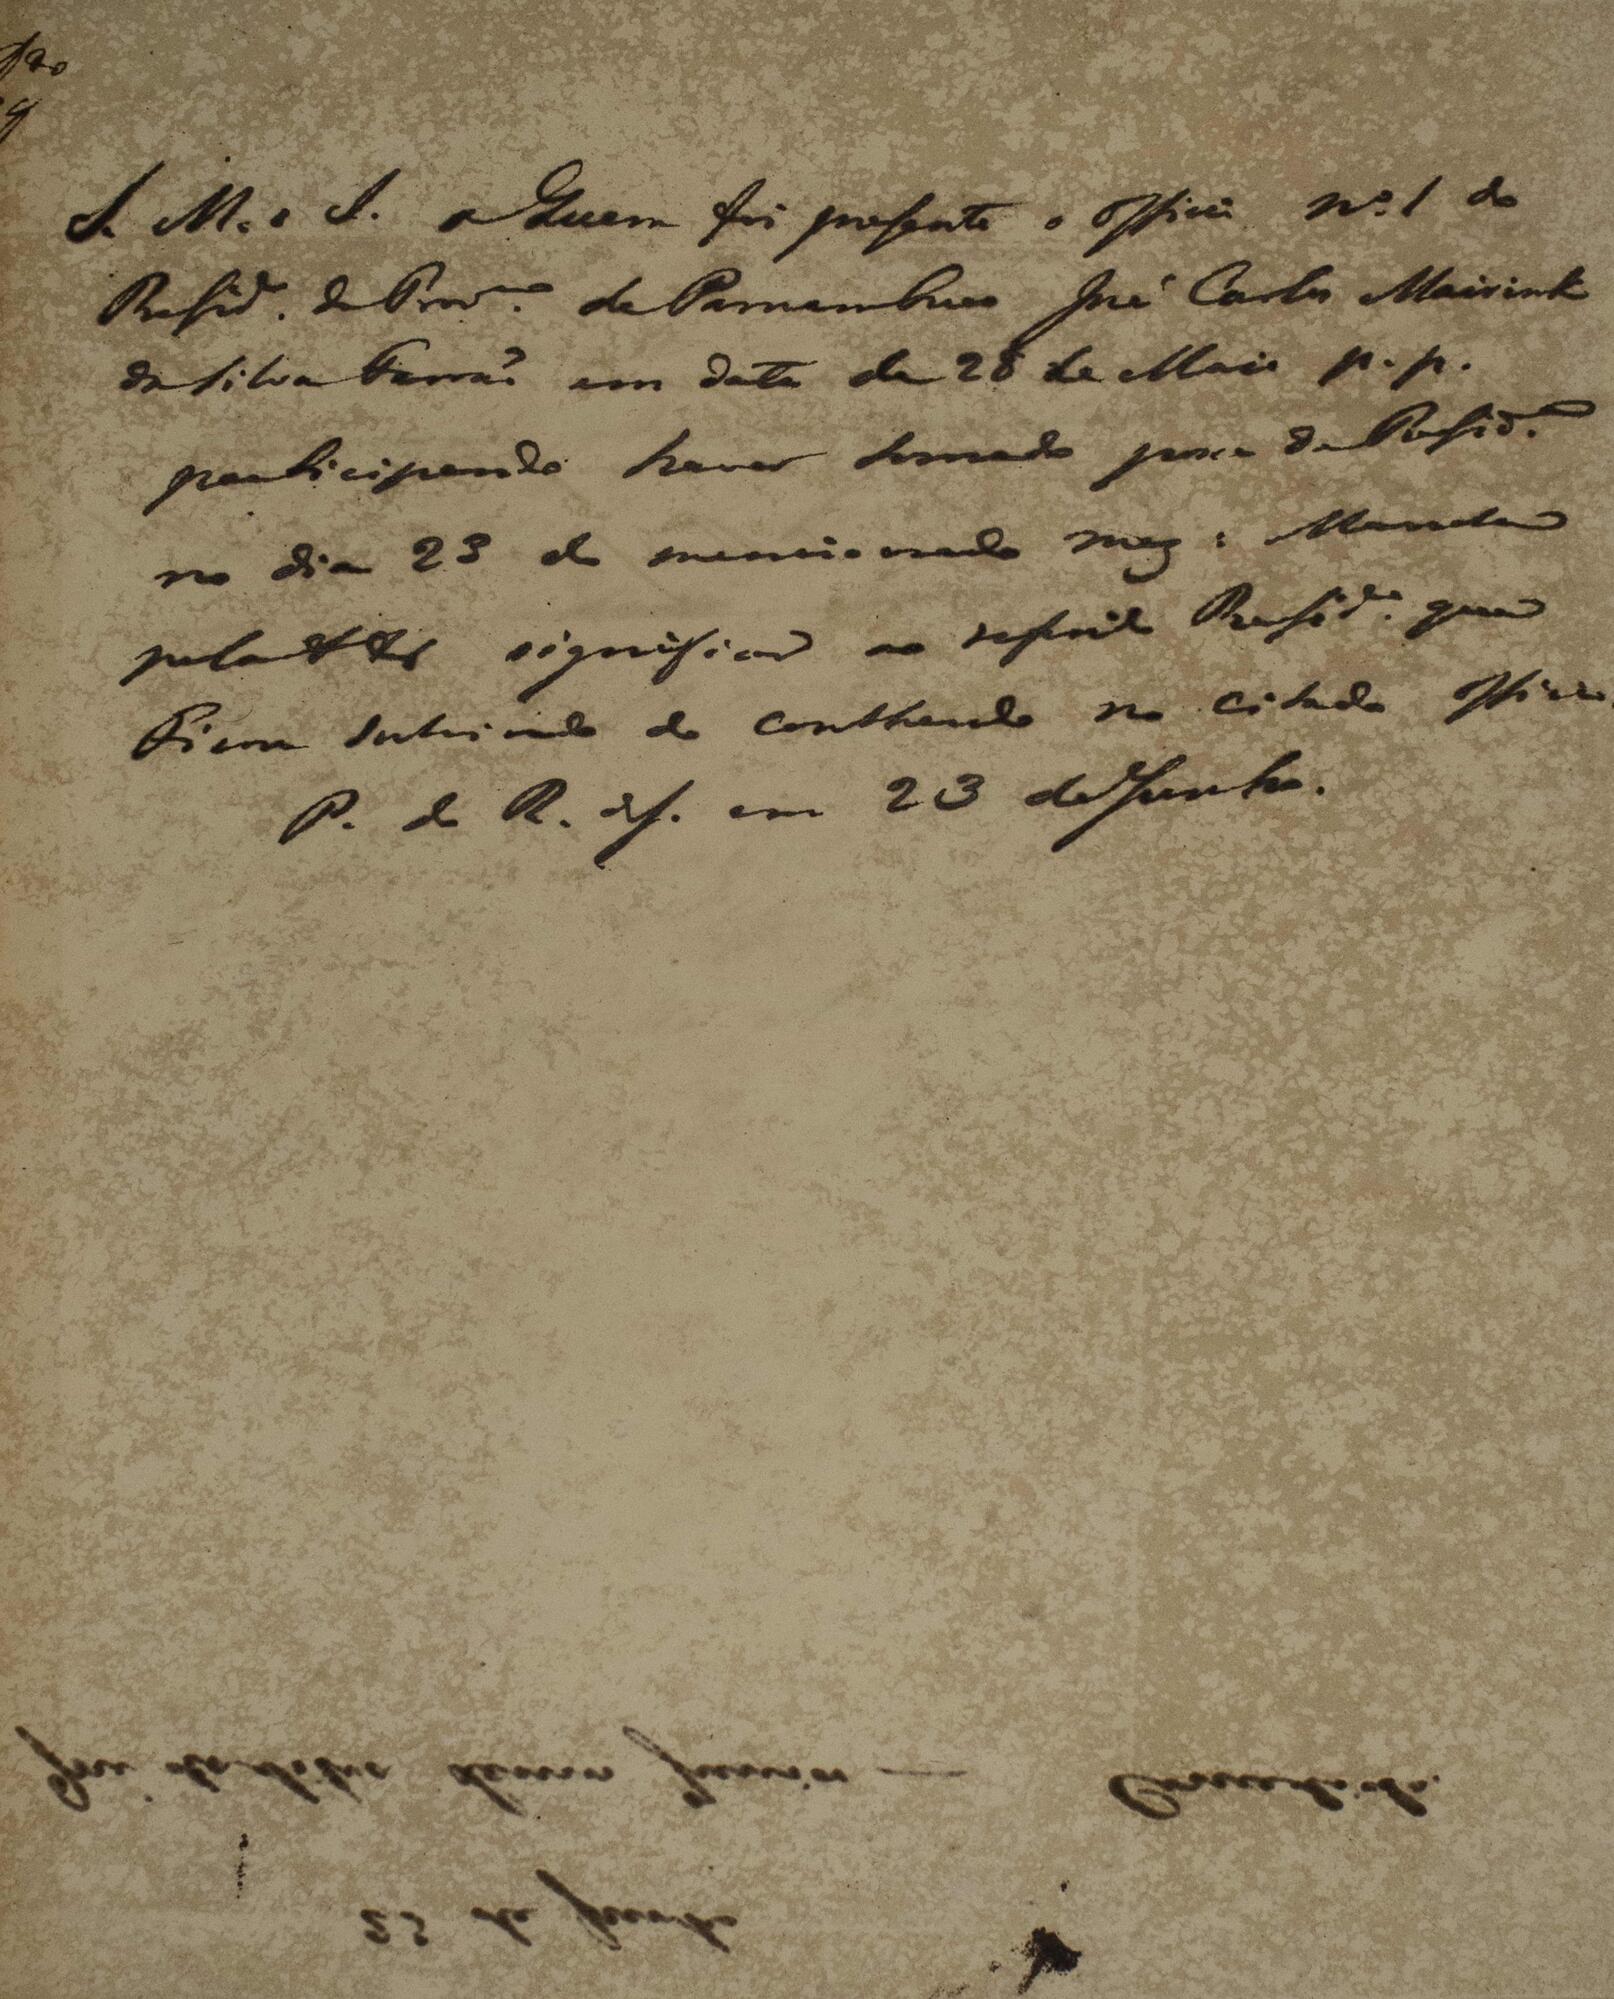 S. M. o I. a Quem foi presente o Officio nº. 1 do
Presid.e da Prov.a de Pernambuco José Carlos Mairink
da Silva Ferrão em data de 28 de Maio p. p.
participando haver tomado posse da Presid.a
no dia 23 do mencionado mez: Manda
pela significar ao referido Presid.e que
Ficou inteirado do contheudo no citado Officio.
P. do R. de J. em 23 de Junho.
José da Silva Junior — Concedida.
23 de Junho